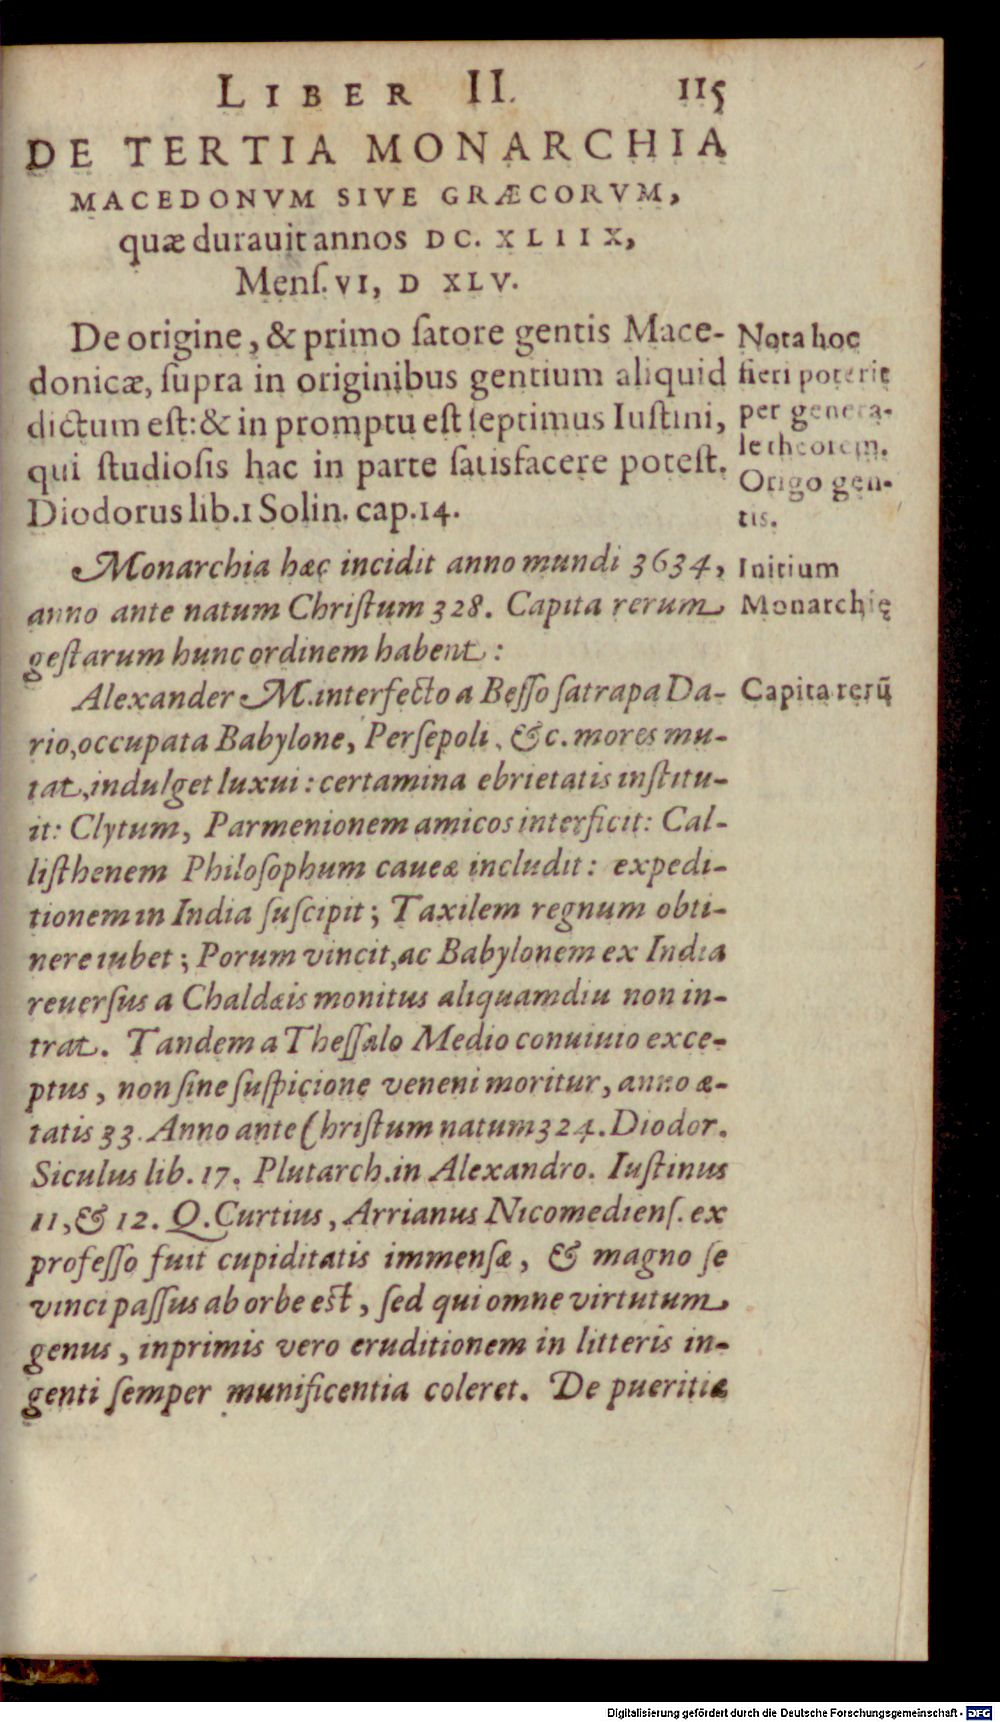 LIBER II. 115
DE TERTIA MONARCHIA
MACEDONVM SIVE GRÆCORVM,
quæ durauit annos DC. XLIIX,
Mens. VI, D XLV.
De origine, & primo satore gentis Mace-
donicæ, supra in originibus gentium aliquid
dictum est: & in promptu est septimus Iustini,
qui studiosis hac in parte satisfacere potest.
Diodorus lib. 1 Solin. cap. 14.
Nota hoc
fieri poterit
per genera-
le theorem.
Origo gen-
tis.
Monarchia hæc incidit anno mundi 3634,
anno ante natum Christum 328. Capita rerum
gestarum hunc ordinem habent:
Initium
Monarchię
Alexander M. interfecto a Besso satrapa Da-
rio, occupata Babylone, Persepoli, &c. mores mu-
tat, indulget luxui: certamina ebrietatis institu-
it: Clytum, Parmenionem amicos interficit: Cal-
listhenem Philosophum caueæ includit: expedi-
tionem in India suscipit; Taxilem regnum obti-
nere iubet; Porum vincit, ac Babylonem ex India
reuersus a Chaldæis monitus aliquamdiu non in-
trat. Tandem a Thessalo Medio conuiuio exce-
ptus, non sine suspicione veneni moritur, anno æ-
tatis 33. Anno ante Christum natum 324. Diodor.
Siculus lib. 17. Plutarch. in Alexandro. Iustinus
11, & 12. Q. Curtius, Arrianus Nicomediens. ex
professo fuit cupiditatis immensæ, & magno se
vinci passus ab orbe est, sed qui omne virtutum
genus, inprimis vero eruditionem in litteris in-
genti semper munificentia coleret. De pueritiæ
Capita rerū
Digitalisierung gefördert durch die Deutsche Forschungsgemeinschaft - DFG